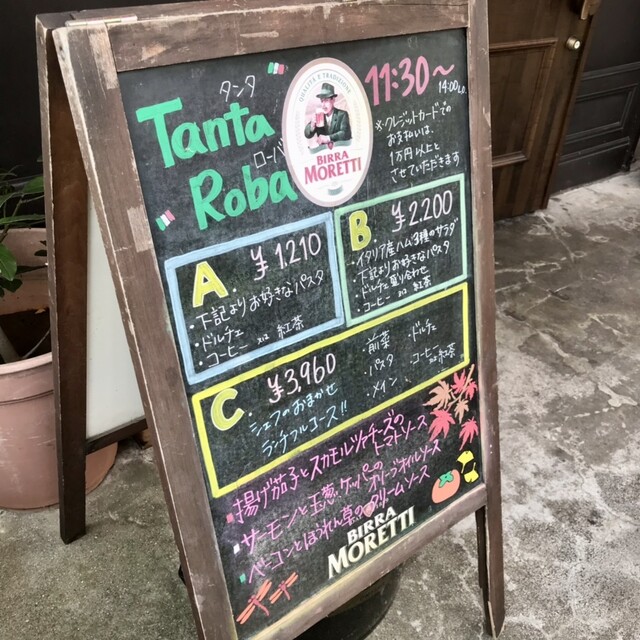 タンタ
Tanta
ローバ
Roba
QUALITÀ E TRADIZIONE
BIRRA
MORETTI
11:30〜
14:00 L.O.
※クレジットカードでの
お支払いは、
1万円以上と
させていただきます
A.
¥1,210
・下記よりお好きなパスタ
・ドルチェ
・コーヒー or 紅茶
B
¥2,200
・イタリア産ハム3種のサラダ
・下記よりお好きなパスタ
・ドルチェ盛り合わせ
・コーヒー or 紅茶
C
¥3,960
シェフのおまかせ
ランチフルコース!!
・前菜
・パスタ
・メイン
・ドルチェ
・コーヒー or 紅茶
・揚げ茄子とスカモルツァチーズのトマトソース
・サーモンと玉葱、ケッパーのオリーブオイルソース
・ベーコンとほうれん草のクリームソース
BIRRA
MORETTI